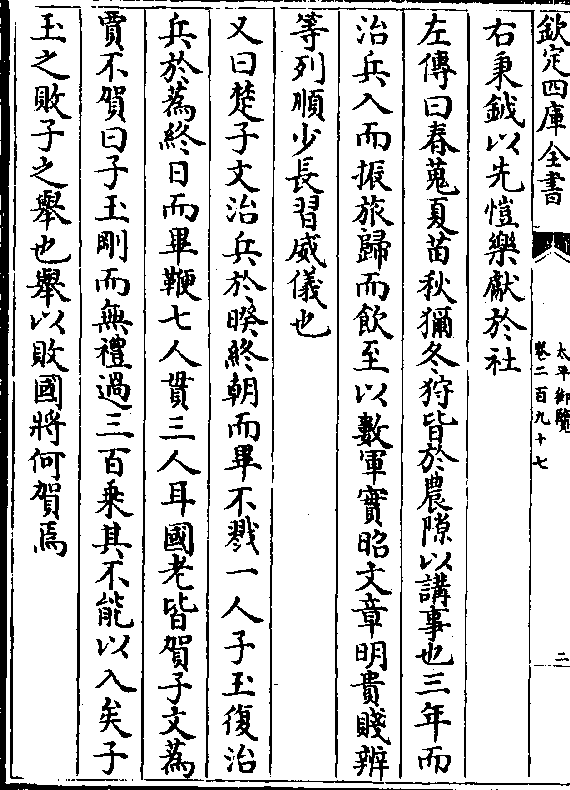 欽定四庫全書
太平御覽
卷二百九十七
二
右秉鉞以先愷樂獻於社
左傳曰春蒐夏苗秋獮冬狩皆於農隙以講事也三年而
治兵入而振旅歸而飲至以數軍實昭文章明貴賤辨
等列順少長習威儀也
又曰楚子文治兵於暌終朝而畢不戮一人子玉復治
兵於蒍終日而畢鞭七人貫三人耳國老皆賀子文蒍
賈不賀曰子玉剛而無禮過三百乘其不能以入矣子
玉之敗子之舉也舉以敗國將何賀焉